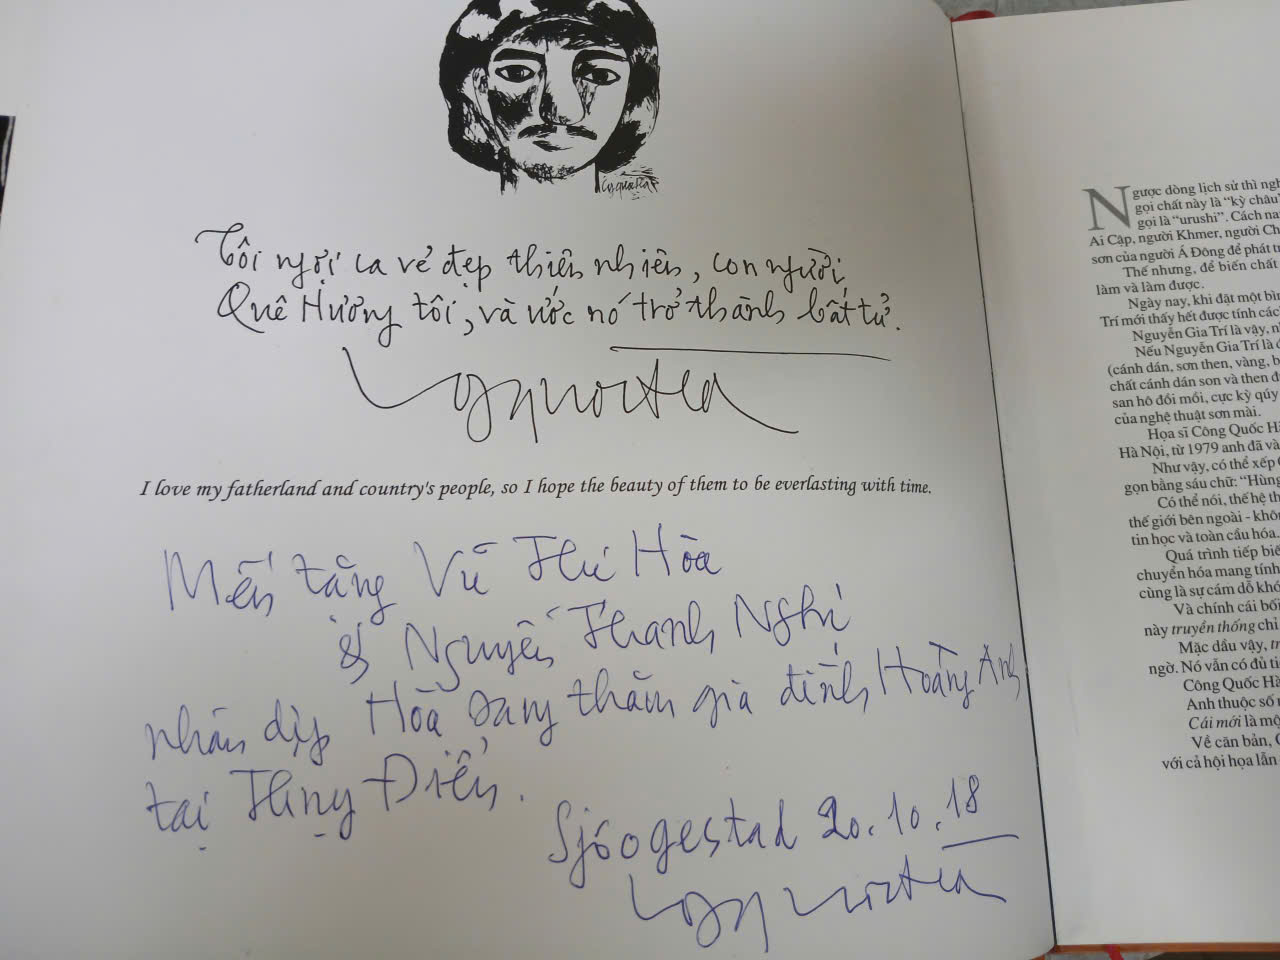 Tôi ngợi ca vẻ đẹp thiên nhiên, con người
Quê Hương tôi, và ước nó trở thành bất tử.
I love my fatherland and country's people, so I hope the beauty of them to be everlasting with time.
Mến tặng Vũ Thu Hòa
& Nguyễn Thanh Nghị
nhân dịp Hòa sang thăm gia đình Hoàng Anh
tại Thụy Điển.
20.10.18
Ngược dòng lịch sử thì
gọi chất này là “kỳ châu”
gọi là “urushi”. Cách
Ai Cập, người Khmer, người
sơn của người Á Đông để phát
Thế nhưng, để biến chất
làm và làm được.
Ngày nay, khi đặt một
Trí mới thấy hết được tính
Nguyễn Gia Trí là vậy,
Nếu Nguyễn Gia Trí là
(cánh dán, sơn then, vàng,
chất cánh dán son và then
san hô đồi mồi, cực kỳ qúy
của nghệ thuật sơn mài.
Họa sĩ Công Quốc
Hà Nội, từ 1979 anh đã và
Như vậy, có thể xếp
gọn bằng sáu chữ: “Hùng
Có thể nói, thế hệ
thế giới bên ngoài -
tin học và toàn cầu hóa.
Quá trình tiếp
chuyển hóa mang tính
cũng là sự cám dỗ
Và chính cái
này truyền thống chỉ
Mặc dầu vậy,
ngờ. Nó vẫn có đủ
Công Quốc
Anh thuộc số
Cái mới là
Về căn bản,
với cả hội họa lẫn